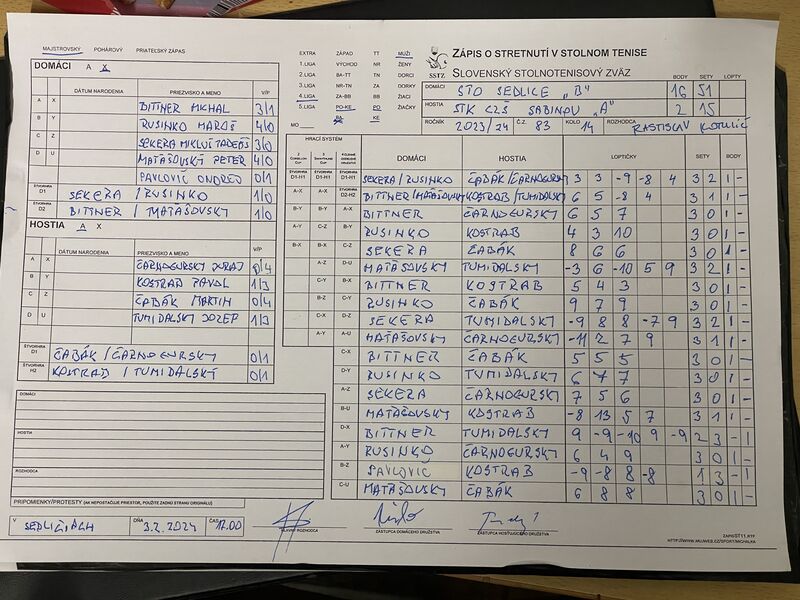 MAJSTROVSKÝ POHÁROVÝ PRIATEĽSKÝ ZÁPAS
DOMÁCI A X
DÁTUM NARODENIA PRIEZVISKO A MENO V/P
A X BITTNER MICHAL 3/1
B Y RUSINKO MAROŠ 4/0
C Z SEKERA MIKLUŠ TADEÁŠ 3/0
D U MATAŠOVSKÝ PETER 4/0
PAVLOVIČ ONDREJ 0/1
ŠTVORHRA D1 SEKERA / RUSINKO 1/0
ŠTVORHRA D2 BITTNER / MATAŠOVSKÝ 1/0
HOSTIA A X
DÁTUM NARODENIA PRIEZVISKO A MENO V/P
A X ČARNOGURSKÝ JURAJ 0/4
B Y KOSTRAB PAVOL 1/3
C Z ČABÁK MARTIN 0/4
D U TUMIDALSKÝ JOZEF 1/3
ŠTVORHRA D1 ČABÁK / ČARNOGURSKÝ 0/1
ŠTVORHRA H2 KOSTRAB / TUMIDALSKÝ 0/1
DOMÁCI
HOSTIA
ROZHODCA
PRIPOMIENKY/PROTESTY (AK NEPOSTAČUJE PRIESTOR, POUŽITE ZADNÚ STRANU ORIGINÁLU)
V SEDLICIACH DŇA 3.2.2024 ČAS 17.00
EXTRA ZÁPAD TT MUŽI
1.LIGA VÝCHOD NR ŽENY
2.LIGA BA-TT TN DORCI
3.LIGA NR-TN ZA DORKY
4.LIGA ZA-BB BB ŽIACI
5.LIGA PO-KE PO ŽIAČKY
MO BA KE
SSTZ
ZÁPIS O STRETNUTÍ V STOLNOM TENISE
SLOVENSKÝ STOLNOTENISOVÝ ZVÄZ
BODY SETY LOPTY
DOMÁCI STO SEDLICE „B“ 16 51
HOSTIA STK CZŠ SABINOV „A“ 2 15
ROČNÍK 2023/24 Č.Z. 83 KOLO 14 ROZHODCA RASTISLAV KOTULIČ
HRACÍ SYSTÉM
DOMÁCI HOSTIA LOPTIČKY SETY BODY
ŠTVORHRA D1-H1 ŠTVORHRA D1-H1 ŠTVORHRA D1-H1 SEKERA/RUSINKO ČABÁK/ČARNOGURSKÝ 3 3 -9 -8 4 3 2 1 -
A-X A-X ŠTVORHRA D2-H2 BITTNER/MATAŠOVSKÝ KOSTRAB/TUMIDALSKÝ 6 5 -8 4 3 1 1 -
B-Y B-Y A-X BITTNER ČARNOGURSKÝ 6 5 7 3 0 1 -
A-Y C-Z B-Y RUSINKO KOSTRAB 4 3 10 3 0 1 -
B-X B-X C-Z SEKERA ČABÁK 8 6 6 3 0 1 -
A-Z D-U MATAŠOVSKÝ TUMIDALSKÝ -3 6 -10 5 9 3 2 1 -
C-Y B-X BITTNER KOSTRAB 5 4 3 3 0 1 -
B-Z C-Y RUSINKO ČABÁK 9 7 9 3 0 1 -
C-X D-Z SEKERA TUMIDALSKÝ -9 8 8 -7 9 3 2 1 -
A-Y A-U MATAŠOVSKÝ ČARNOGURSKÝ -11 2 7 9 3 1 1 -
C-X BITTNER ČABÁK 5 5 5 3 0 1 -
D-Y RUSINKO TUMIDALSKÝ 6 7 7 3 0 1 -
A-Z SEKERA ČARNOGURSKÝ 7 5 6 3 0 1 -
B-U MATAŠOVSKÝ KOSTRAB -8 13 5 7 3 1 1 -
D-X BITTNER TUMIDALSKÝ 9 -9 -10 9 -9 2 3 - 1
A-Y RUSINKO ČARNOGURSKÝ 6 4 9 3 0 1 -
B-Z PAVLOVIČ KOSTRAB -9 -8 8 -8 1 3 - 1
C-U MATAŠOVSKÝ ČABÁK 6 8 8 3 0 1 -
HLAVNÝ ROZHODCA
ZÁSTUPCA DOMÁCEHO DRUŽSTVA
ZÁSTUPCA HOSŤUJÚCEHO DRUŽSTVA
ZAPISST11.RTF
HTTP://WWW.MUJWEB.CZ/SPORT/MICHALKA